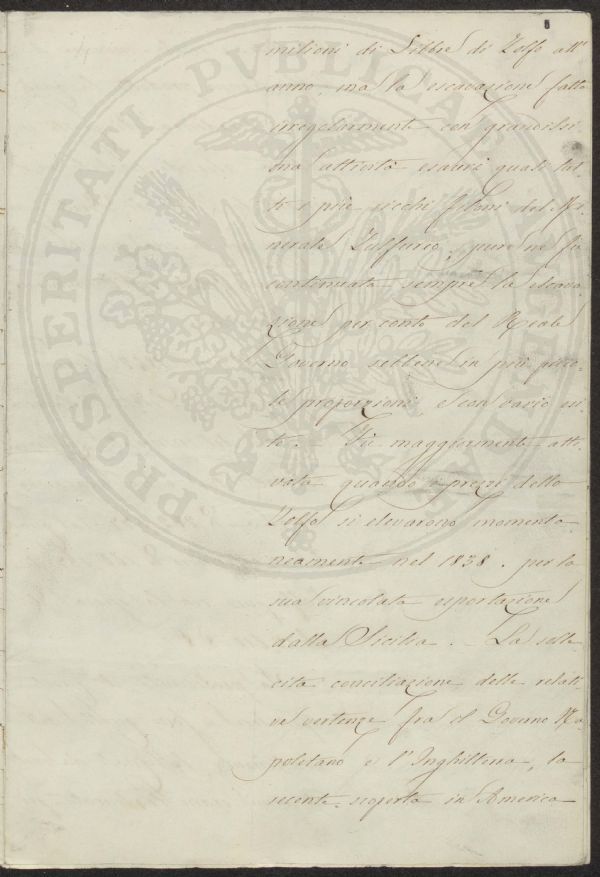 milioni di Libbre di Zolfo all'
anno, ma la escavazione fatta
irregolarmente con grandissi
ma attività esaurì quasi tut
ti i più ricchi filoni del Mi
nerale Zulfureo, pure ne fu
continuata sempre la escava
zione per conto del Reale
Governo sebbene in più picco
le proporzioni, e con vario esi
to. Fu maggiormente atti
vata quando i prezzi dello
Zolfo si elevarono momenta
neamente nel 1838. per la
sua vincolata esportazione
dalla Sicilia. – La solle
cita conciliazione delle relati
ve vertenze fra il Governo Na
poletano e l'Inghilterra, la
recente scoperta in America
PROSPERITATI PUBLICAE AUGENDAE